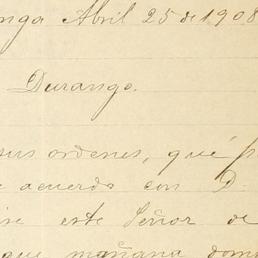 nga Abril 25 de 1908
Durango.
sus ordenes, qué p
e acuerdo con D.
este Señor de
que mañana dom